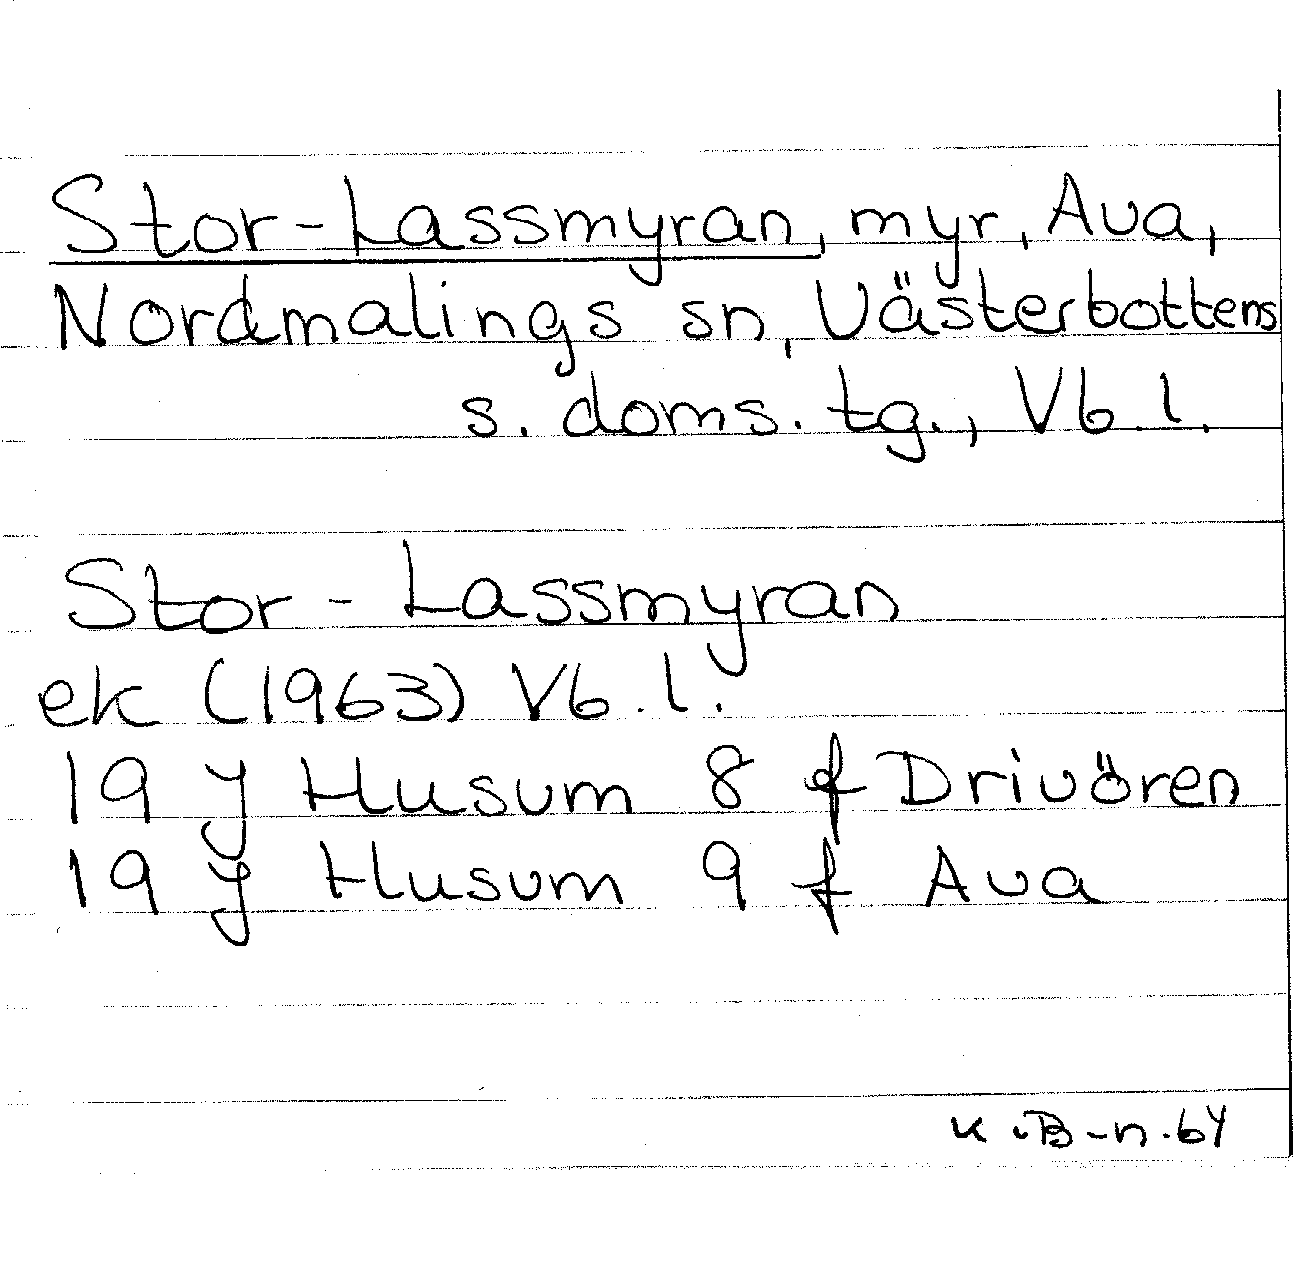 Stor-Lassmyran, myr, Ava,
Nordmalings sn, Västerbottens
s. doms. tg., Vb. l.
Stor-Lassmyran
ek (1963) Vb. l.
19 J Husum 8 f Drivören
19 J Husum 9 f Ava
K.B-n.64